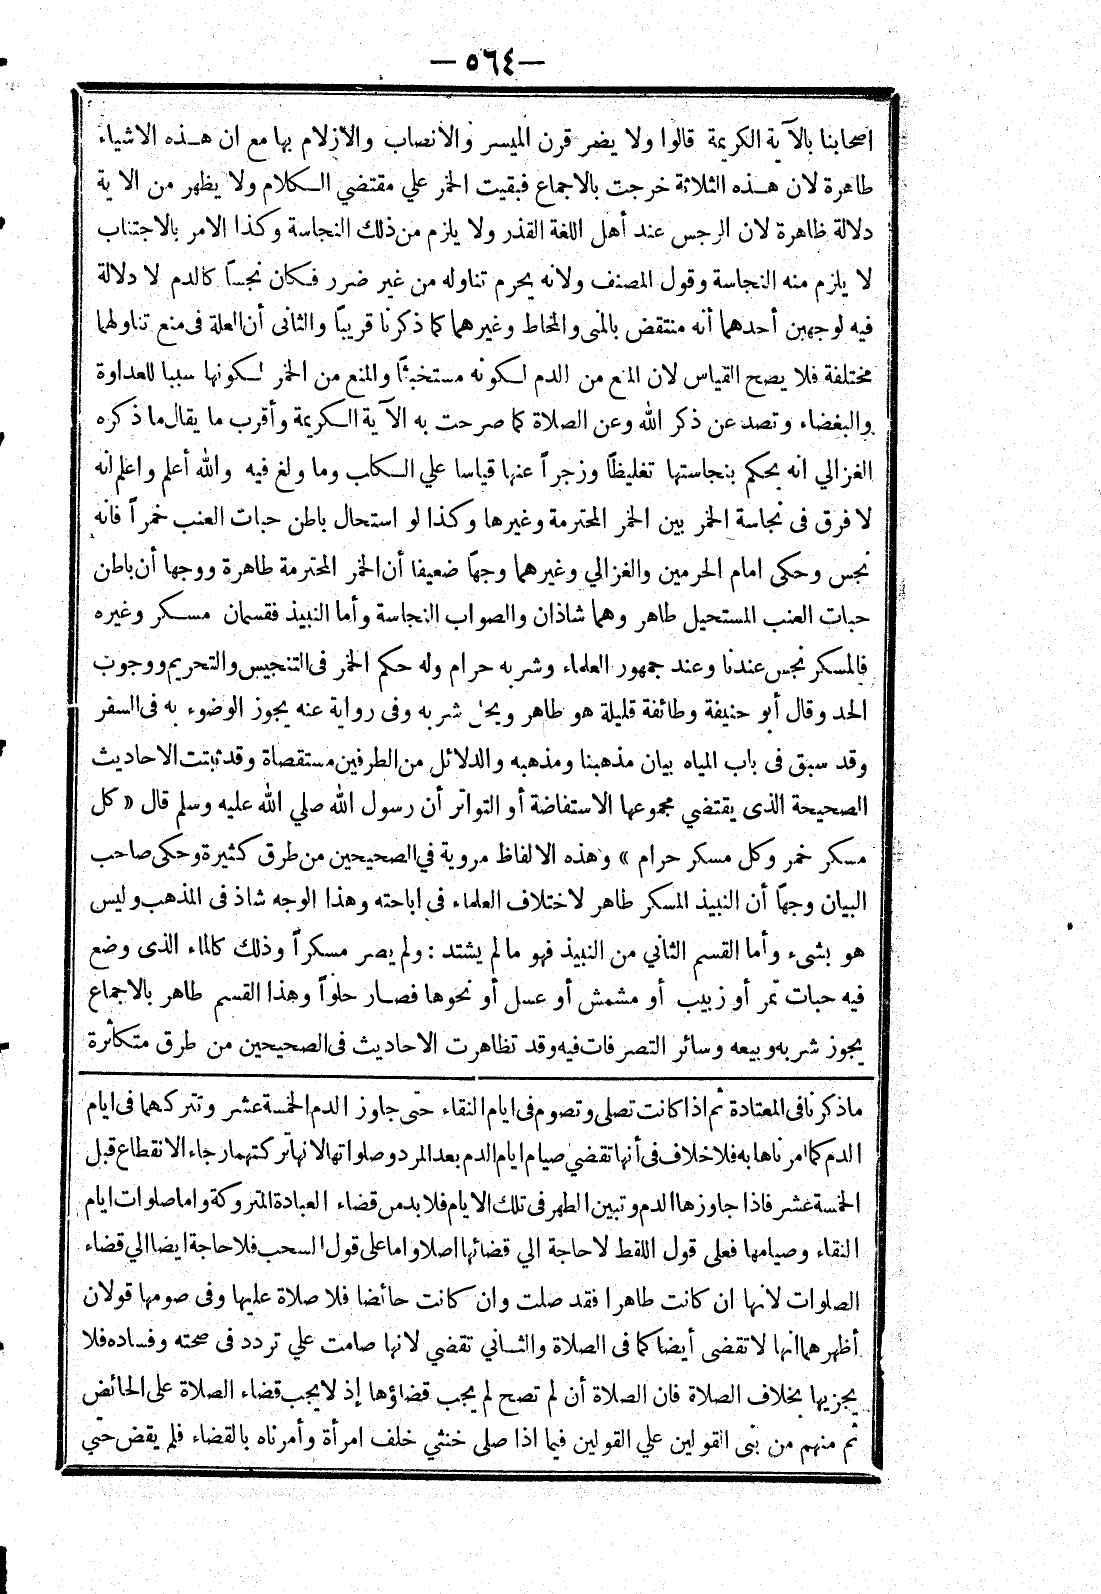 — ٥٦٤ —
اصحابنا بالآية الكريمة قالوا ولا يضر قرن الميسر والانصاب والازلام بها مع ان هذه الاشياء
طاهرة لان هذه الثلاثة خرجت بالاجماع فبقيت الخمر علي مقتضي الكلام ولا يظهر من الاية
دلالة ظاهرة لان الرجس عند أهل اللغة القذر ولا يلزم من ذلك النجاسة وكذا الامر بالاجتناب
لا يلزم منه النجاسة وقول المصنف ولانه يحرم تناوله من غير ضرر فكان نجسا كالدم لا دلالة
فيه لوجهين أحدهما أنه منتقض بالمنى والمخاط وغيرهما كما ذكرنا قريبا والثانى أن العلة فى منع تناولهما
مختلفة فلا يصح القياس لان المنع من الدم لكونه مستخبثا والمنع من الخمر لكونها سببا للعداوة
والبغضاء وتصد عن ذكر الله وعن الصلاة كما صرحت به الآية الكريمة وأقرب ما يقال ما ذكره
الغزالي انه يحكم بنجاستها تغليظا وزجراً عنها قياسا علي الكلب وما ولغ فيه والله أعلم واعلم انه
لا فرق فى نجاسة الخمر بين الخمر المحترمة وغيرها وكذا لو استحال باطن حبات العنب خمراً فانه
نجس وحكى امام الحرمين والغزالي وغيرهما وجها ضعيفا أن الخمر المحترمة طاهرة ووجها أن باطن
حبات العنب المستحيل طاهر وهما شاذان والصواب النجاسة وأما النبيذ فقسمان مسكر وغيره
فالمسكر نجس عندنا وعند جمهور العلماء وشربه حرام وله حكم الخمر فى التنجيس والتحريم ووجوب
الحد وقال أبو حنيفة وطائفة قليلة هو طاهر ويحل شربه وفى رواية عنه يجوز الوضوء به فى السفر
وقد سبق فى باب المياه بيان مذهبنا ومذهبه والدلائل من الطرفين مستقصاة وقد ثبتت الاحاديث
الصحيحة الذى يقتضي مجموعها الاستفاضة أو التواتر أن رسول الله صلي الله عليه وسلم قال « كل
مسكر خمر وكل مسكر حرام » وهذه الالفاظ مروية في الصحيحين من طرق كثيرة وحكى صاحب
البيان وجها أن النبيذ المسكر طاهر لاختلاف العلماء فى اباحته وهذا الوجه شاذ فى المذهب وليس
هو بشىء وأما القسم الثاني من النبيذ فهو ما لم يشتد : ولم يصر مسكراً وذلك كالماء الذى وضع
فيه حبات تمر أو زبيب أو مشمش أو عسل أو نحوها فصار حلواً وهذا القسم طاهر بالاجماع
يجوز شربه وبيعه وسائر التصرفات فيه وقد تظاهرت الاحاديث فى الصحيحين من طرق متكاثرة
ما ذكرنا فى المعتادة ثم اذا كانت تصلى وتصوم فى ايام النقاء حتى جاوز الدم الخمسة عشر وتتركهما فى ايام
الدم كما امرناها به فلا خلاف فى أنها تقضي صيام ايام الدم بعد المرد وصلواتها لانها تركتهما رجاء الانقطاع قبل
الخمسة عشر فاذا جاوزها الدم وتبين الطهر فى تلك الايام فلا بد من قضاء العبادة المتروكة واما صلوات ايام
النقاء وصيامها فعلى قول اللقط لا حاجة الي قضائها اصلا واما على قول السحب فلا حاجة ايضا الي قضاء
الصلوات لانها ان كانت طاهرا فقد صلت وان كانت حائضا فلا صلاة عليها وفى صومها قولان
أظهرهما انها لا تقضى أيضا كما فى الصلاة والثاني تقضي لانها صامت علي تردد فى صحته وفساده فلا
يجزيها بخلاف الصلاة فان الصلاة أن لم تصح لم يجب قضاؤها إذ لا يجب قضاء الصلاة على الحائض
ثم منهم من بنى القولين علي القولين فيما اذا صلى خنثي خلف امرأة وأمرناه بالقضاء فلم يقض حتي